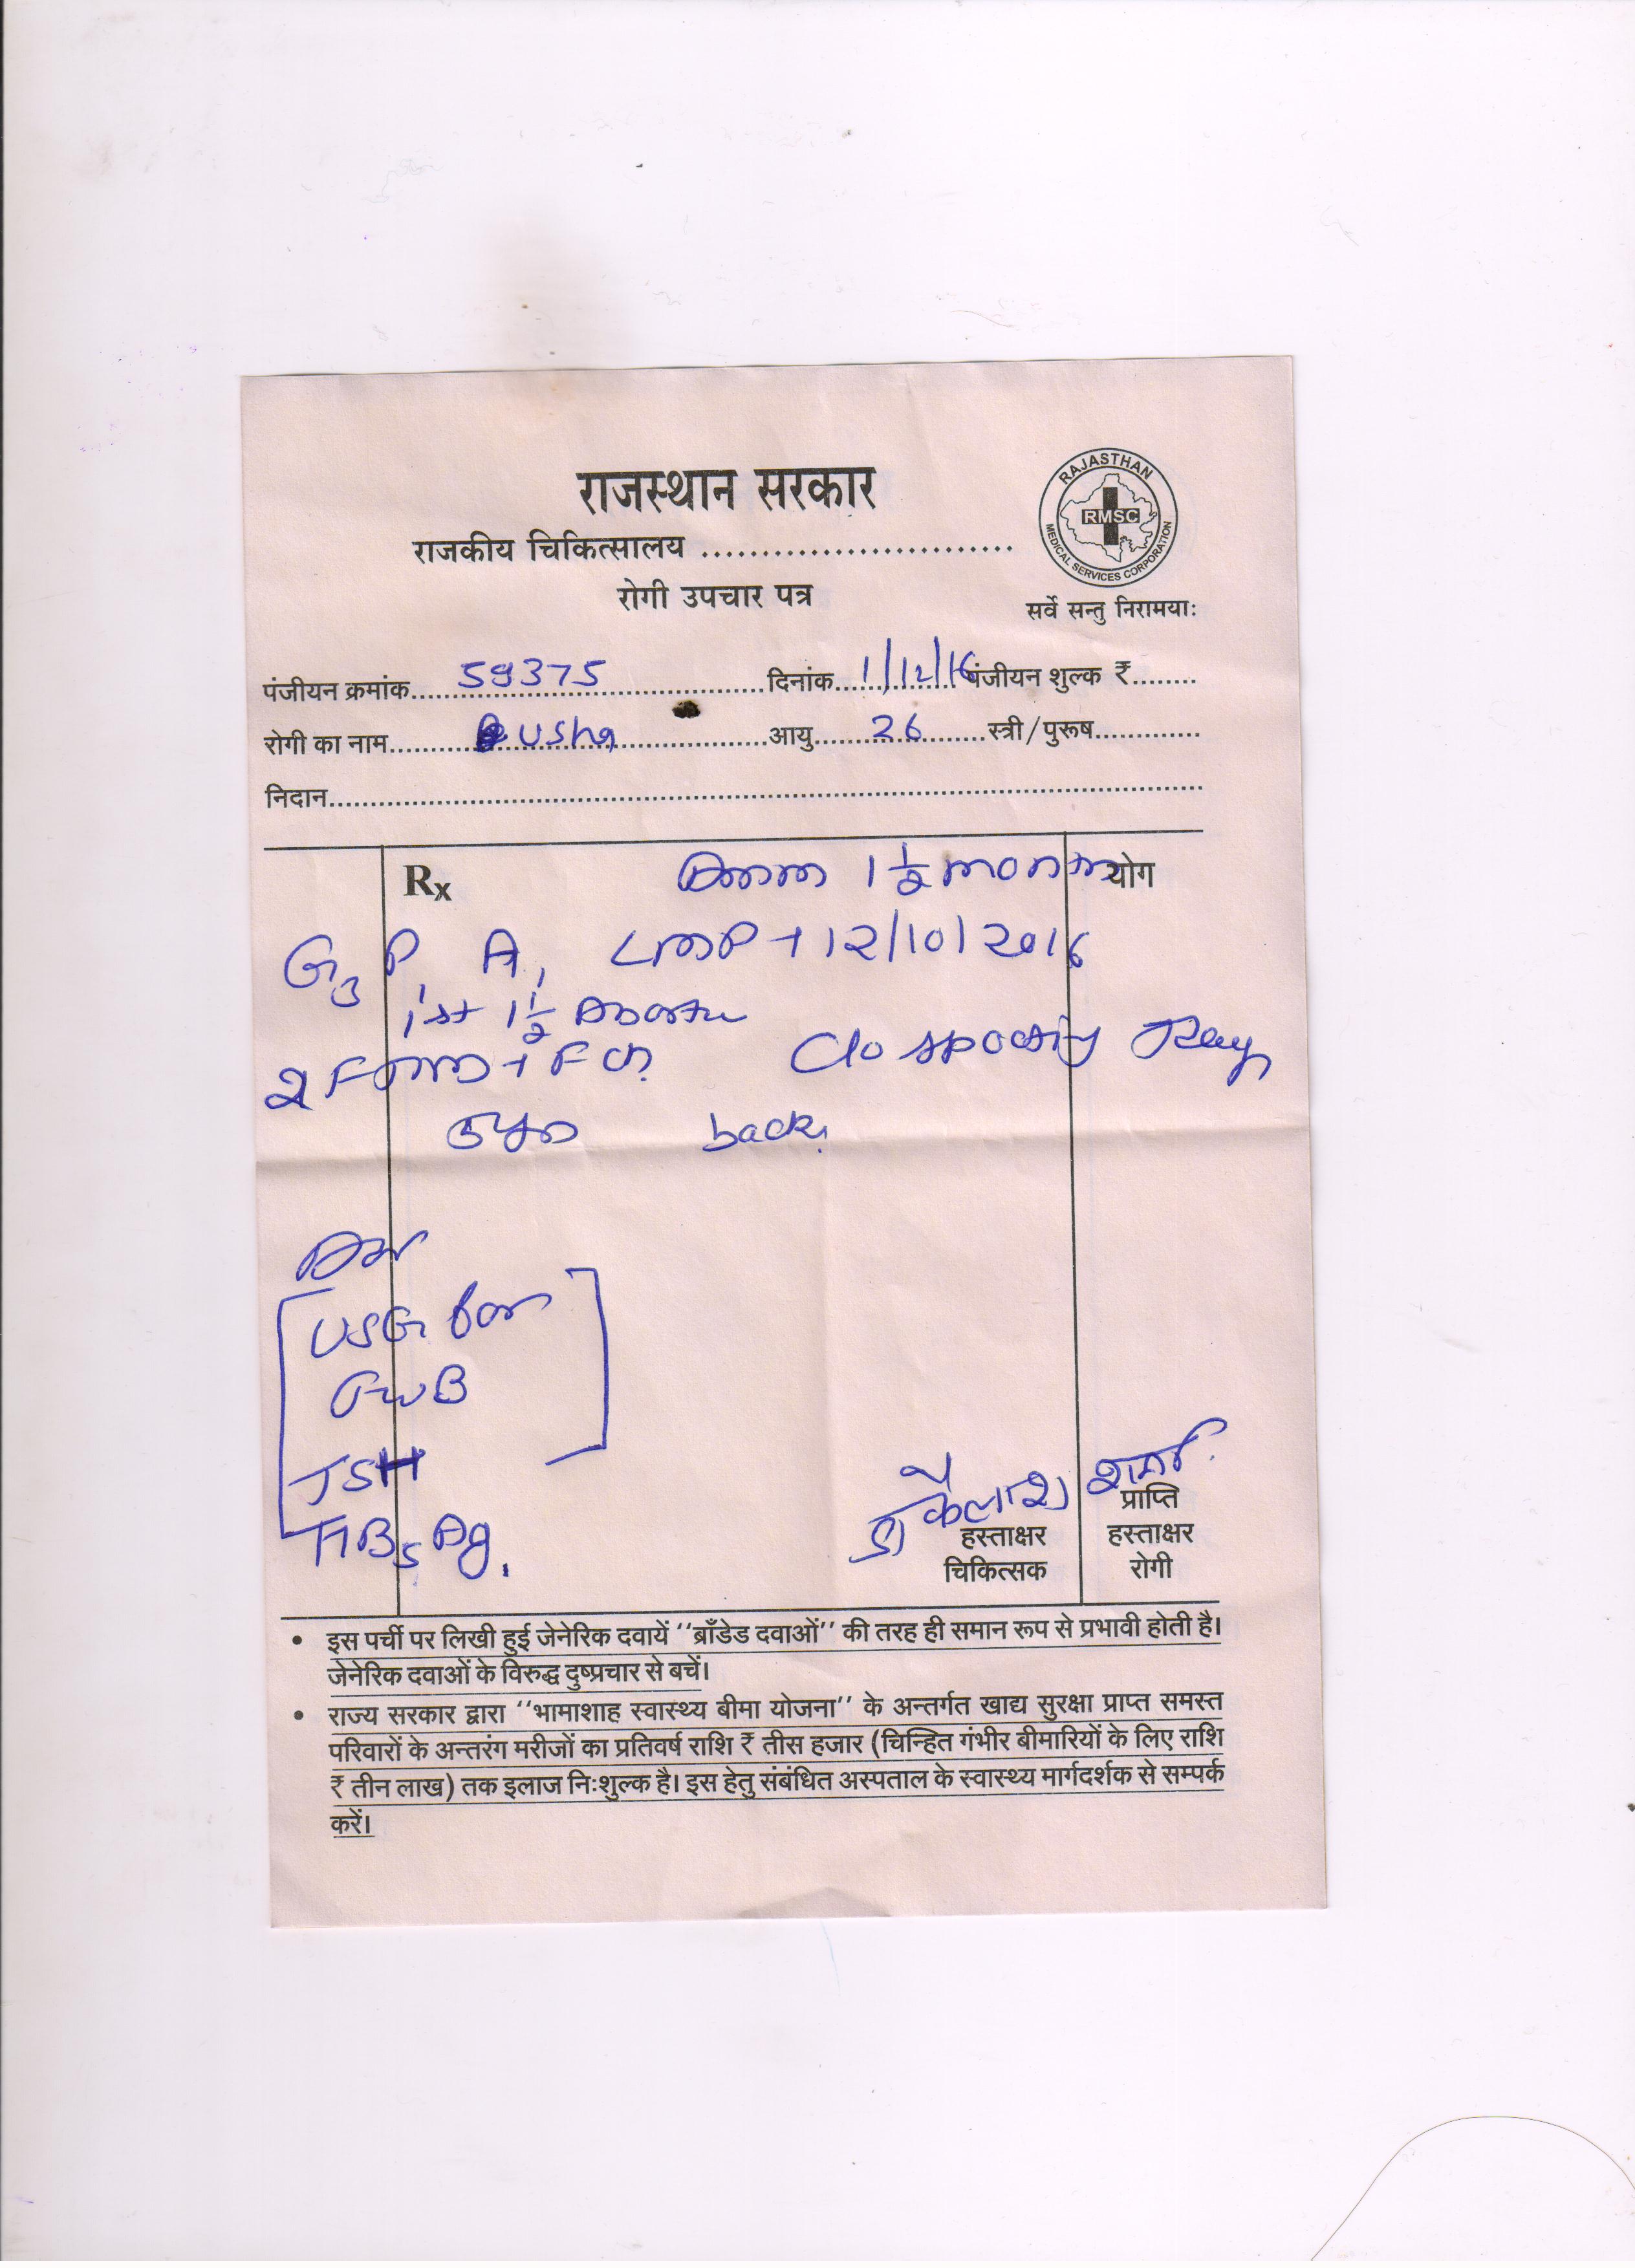 राजस्थान सरकार
राजकीय चिकित्सालय ..........................
रोगी उपचार पत्र
RAJASTHAN
RMSC
MEDICAL SERVICES CORPORATION
सर्वे सन्तु निरामयाः
पंजीयन क्रमांक 59375 दिनांक 1/12/16 पंजीयन शुल्क ₹
रोगी का नाम Usha आयु 26 स्त्री/पुरूष
निदान
Rx 1 1/2 month योग
G3 P1 A1 LMP → 12/10/2016
1st 1 1/2
c/o spotting
back
USG for
FWB
TSH
HBsAg.
डा कैलाश शर्मा
प्राप्ति
हस्ताक्षर हस्ताक्षर
चिकित्सक रोगी
• इस पर्ची पर लिखी हुई जेनेरिक दवायें ''ब्राँडेड दवाओं'' की तरह ही समान रूप से प्रभावी होती है।
जेनेरिक दवाओं के विरुद्ध दुष्प्रचार से बचें।
• राज्य सरकार द्वारा ''भामाशाह स्वास्थ्य बीमा योजना'' के अन्तर्गत खाद्य सुरक्षा प्राप्त समस्त
परिवारों के अन्तरंग मरीजों का प्रतिवर्ष राशि ₹ तीस हजार (चिन्हित गंभीर बीमारियों के लिए राशि
₹ तीन लाख) तक इलाज निःशुल्क है। इस हेतु संबंधित अस्पताल के स्वास्थ्य मार्गदर्शक से सम्पर्क
करें।